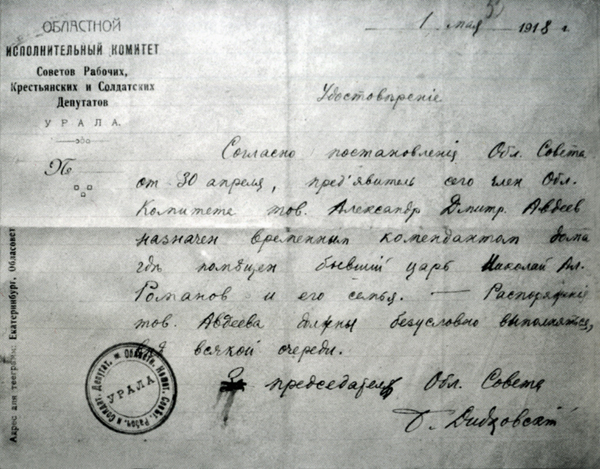 ОБЛАСТНОЙ
ИСПОЛНИТЕЛЬНЫЙ КОМИТЕТ
Советов Рабочих,
Крестьянских и Солдатских
Депутатов
УРАЛА.
№
1 мая 1918 г.
Удостовѣренiе
Согласно постановленiя Обл. Совета
от 30 апреля, пред'явитель сего член Обл.
Комитета тов. Александр Дмитр. Авдеев
назначен временным комендантом дома
гдѣ помѣщен бывшiй царь Николай Ал.
Романов и его семья. — Распоряженiя
тов. Авдеева должны безусловно выполняться,
всякой очереди.
председателя Обл. Совета
Б. Дидковскiй
Адрес для телеграмм: Екатеринбург, Обласовет
УРАЛА